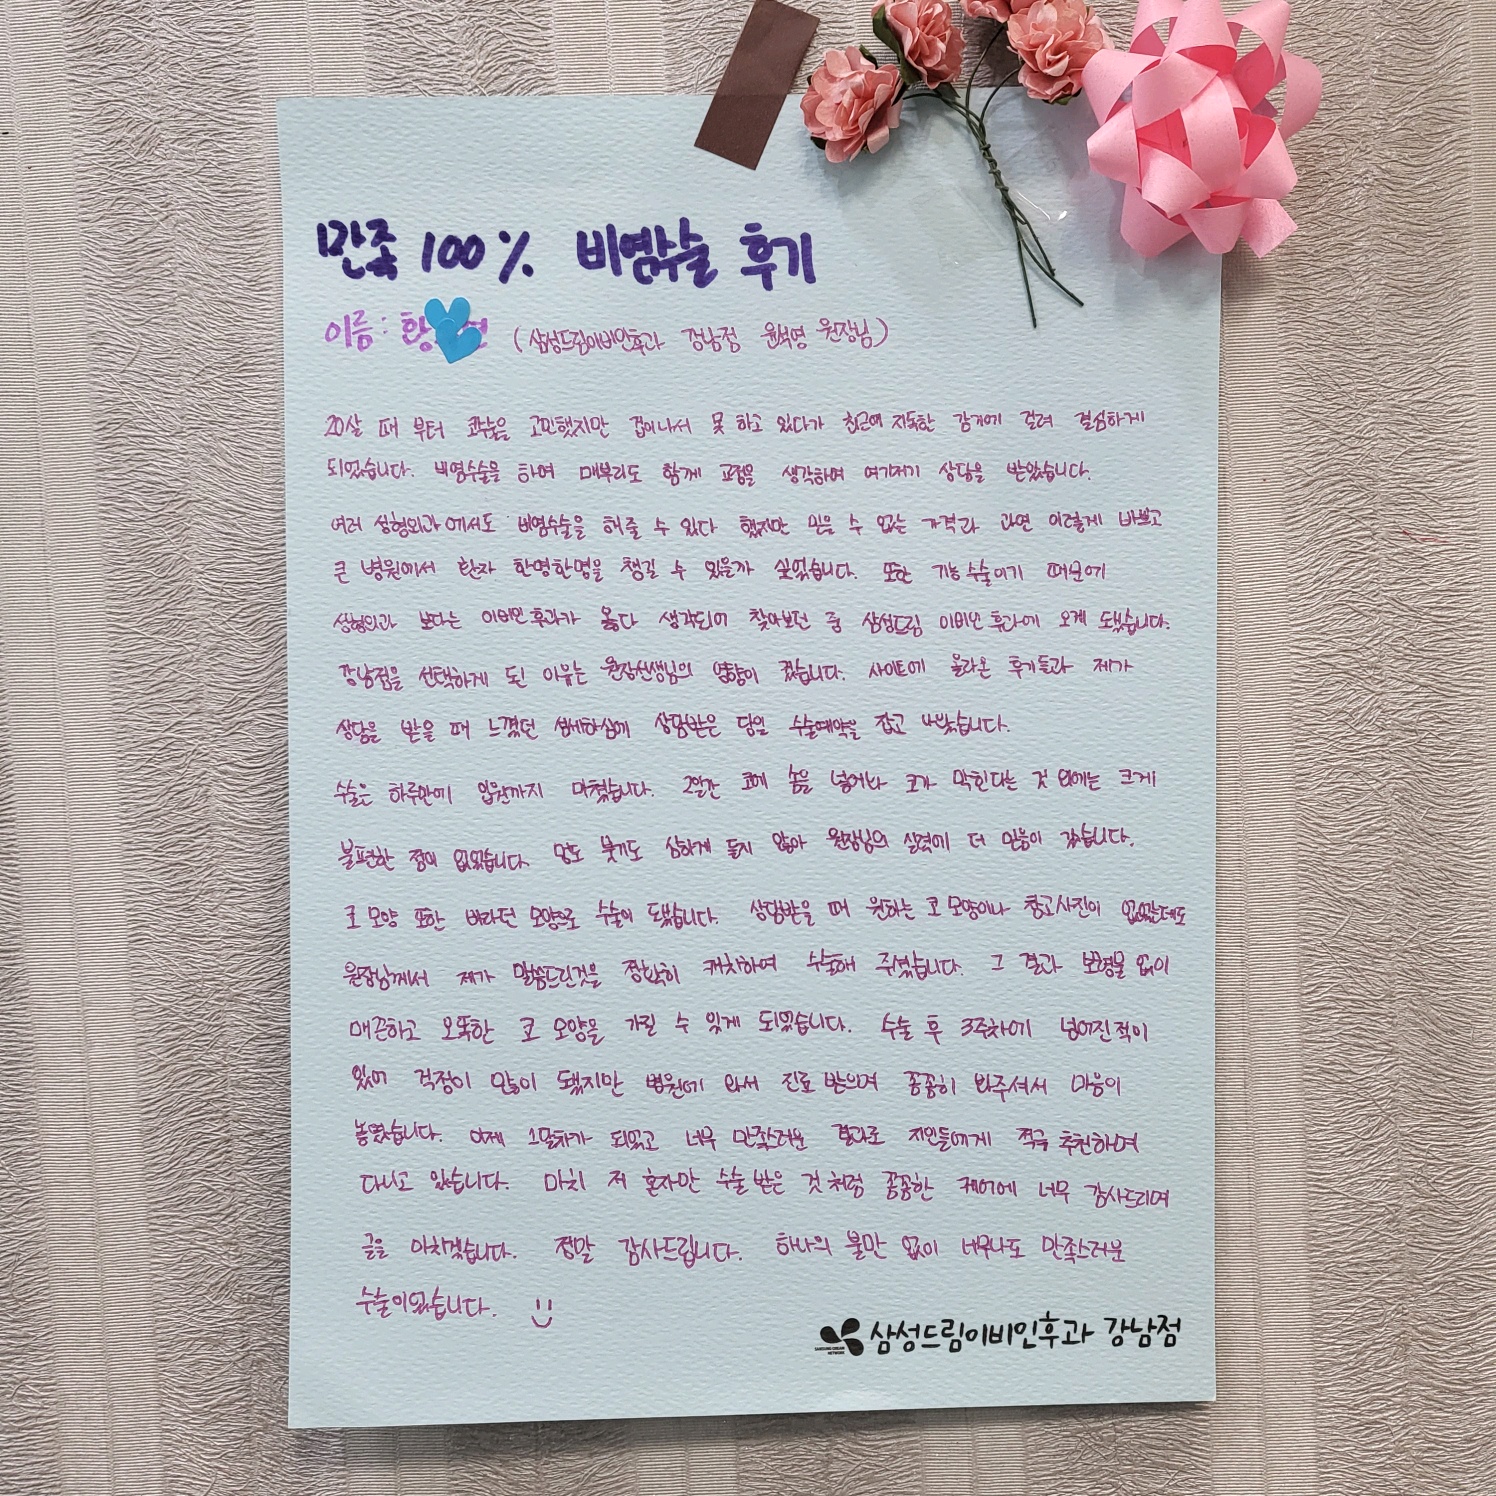 만족 100% 비염수술 후기
이름 : 황 (삼성드림이비인후과 강남점 윤석영 원장님)
20살 때 부터 코수술을 고민했지만 겁이나서 못 하고 있다가 최근에 지독한 감기에 걸려 결심하게
되었습니다. 비염수술을 하며 매부리도 함께 교정을 생각하여 여기저기 상담을 받았습니다.
여러 성형외과에서도 비염수술을 해줄 수 있다 했지만 믿을 수 없는 가격과 과연 이렇게 바쁘고
큰 병원에서 환자 한명한명을 챙길 수 있을까 싶었습니다. 또한 기능수술이기 때문에
성형외과 보다는 이비인후과가 옳다 생각되어 찾아보던 중 삼성드림 이비인후과에 오게 됐습니다.
강남점을 선택하게 된 이유는 원장선생님의 영향이 컸습니다. 사이트에 올라온 후기들과 제가
상담을 받을 때 느꼈던 섬세하심에 상담받은 당일 수술예약을 잡고 나왔습니다.
수술은 하루만에 입원까지 마쳤습니다. 2일간 코에 솜을 넣어놔 코가 막힌다는 것 외에는 크게
불편한 점이 없었습니다. 멍도 붓기도 심하게 들지 않아 원장님의 실력에 더 믿음이 갔습니다.
코 모양 또한 바라던 모양으로 수술이 됐습니다. 상담받을 때 원하는 코 모양이나 참고사진이 없었는데도
원장님께서 제가 말씀드린것을 정확히 캐치하여 수술해 주셨습니다. 그 결과 보형물 없이
매끈하고 오똑한 코 모양을 가질 수 있게 되었습니다. 수술 후 3주차에 넘어진적이
있어 걱정이 많이 됐지만 병원에 와서 진료 받으며 꼼꼼히 봐주셔서 마음이
놓였습니다. 이제 1달차가 되었고 너무 만족스러운 결과로 지인들에게 적극 추천하며
다니고 있습니다. 마치 저 혼자만 수술 받은 것 처럼 꼼꼼한 케어에 너무 감사드리며
글을 마치겠습니다. 정말 감사드립니다. 하나의 불만 없이 너무나도 만족스러운
수술이었습니다. :)
삼성드림이비인후과 강남점